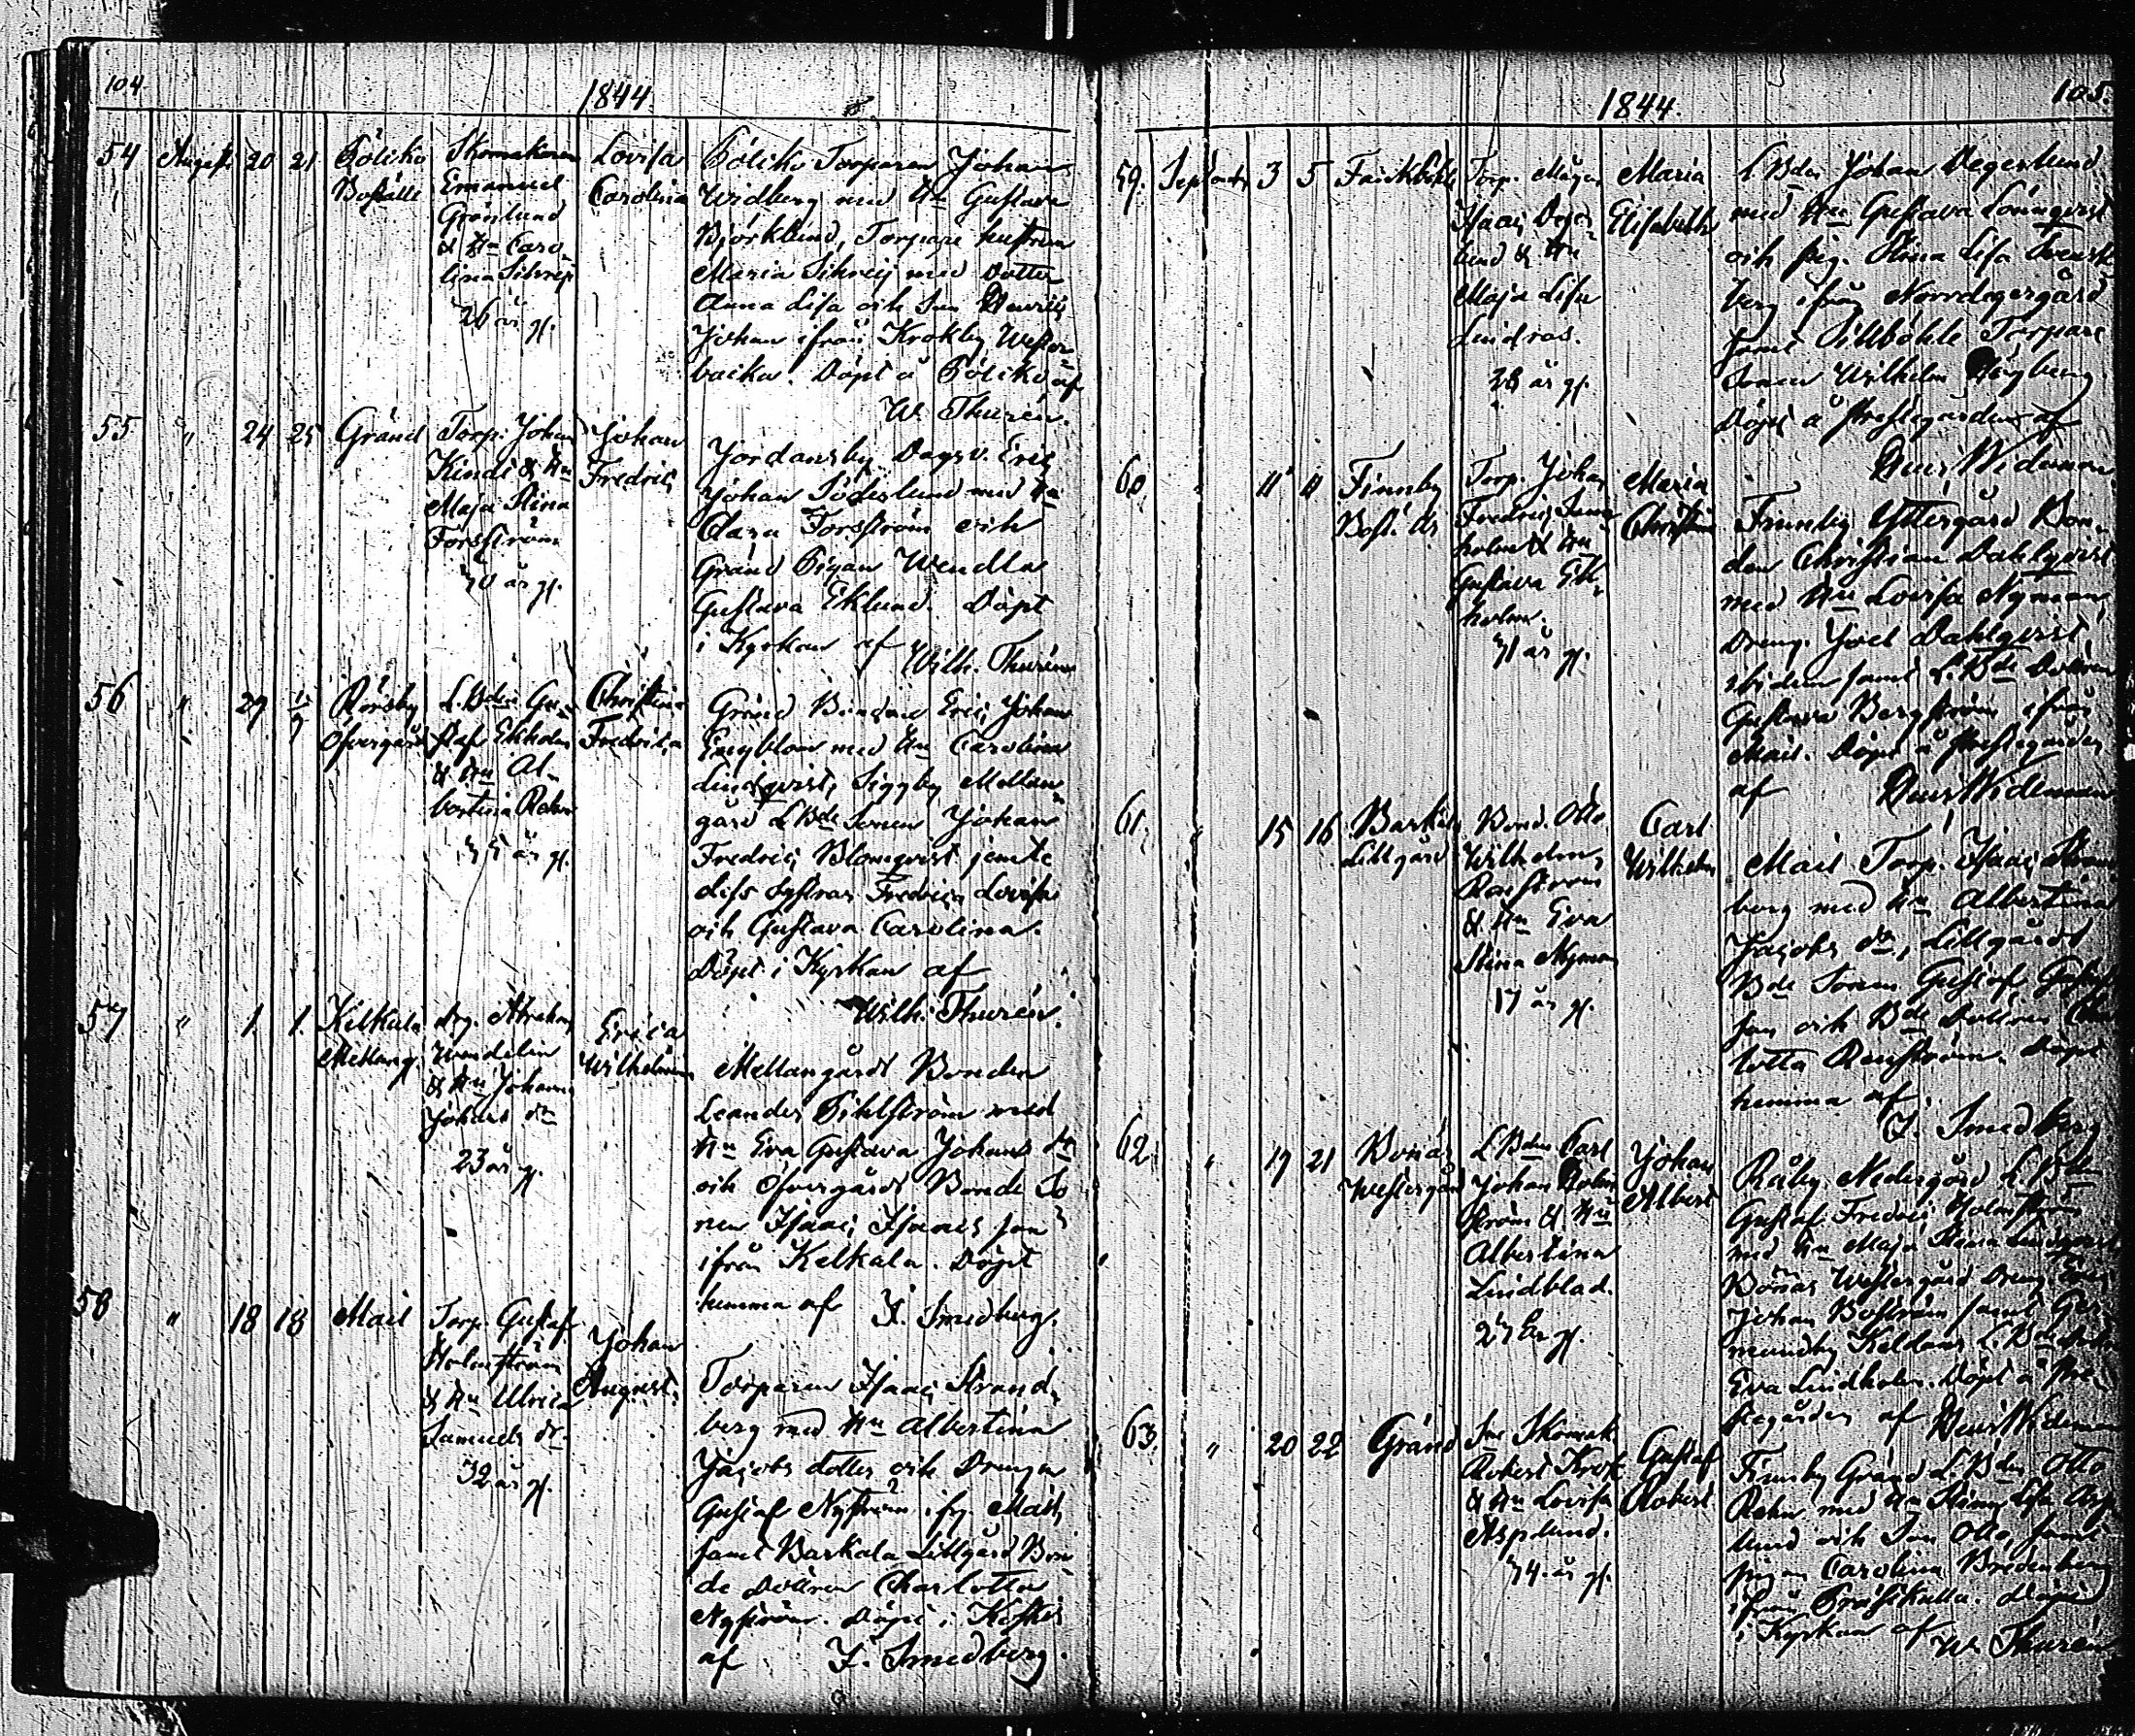 104
1844
54 Augusti 20 21
Boställe
Skomakaren
Emanuel
Grönlund
& Hu Caro
lina
26 år gl.
Lovisa
Carolina
Torparen Johan
Widberg med Hu Gustava
Björklund, Torpare hustrun
Maria med Dotter
Anna Lisa och Son Henric
Johan ifrån Krokby Wester
backa. Döpt å af
W. Thurén.
55 " 24 25 Gränd
Torp. Johan
& Hu
Maja Stina
Forsström
30 år gl.
Johan
Fredric
Jordansby Dagsv. Eric
Johan Söderlund med Hu
Clara Forsström och
Gränd Pigan Wendla
Gustava Eklund. Döpt
i Kyrkan af
Wilh. Thurén
56 " 29 1/9 Rörsby
Öfvergård
L.Bden Gu
staf Ekholm
& Hu Al
bertina Rehn
35 år gl.
Christina
Fredrica
Gränd Bonden Eric Johan
med Hu Carolina
Lindqvist, Siggby Mellan
gård LBde Sonen Johan
Fredric Blomqvist jemte
diss Systrar Fredrica Lovisa
och Gustava Carolina.
Döpt i Kyrkan af
Wilh. Thurén.
57 " 1. 1. Kelkala
Mellang.
drg. Abraham
Wendelin
& Hu Johanna
Johans dr
23 år gl.
Erica
Wilhelmina
Mellangårds Bonden
Leander Pihlström med
Hu Eva Gustava Johans dr
och Öfvergårds Bonde So
nen Isaac Isaacs son
ifrån Kelkala. Döpt
hemma af I. Smedberg.
58 " 18 18 Mail
Torp. Gustaf
Holmström
& Hu Ulrica
Samuels dr.
32 år gl.
Johan
August.
Torparen Isaac Strand
berg med Hu Albertina
Jacobs dotter och Drengen
Gustaf Nyström ifr. Mail,
samt Barkala Lillgård Bon
de Dottren Charlotta
Nyström. Döpt i
af I. Smedberg.
105.
1844.
59. September 3 5
Torp. Mågen
Isaac
lund & Hu
Maja Lisa
Lindroos.
28 år gl.
Maria
Elisabeth
L.Bden Johan Degerlund
med Hu Gustava Lönnqvist
och pig. Stina Lisa Svens
berg ifrån Norrdegergård
samt Pillböhle Torpare
Sonen Wilhelm Högberg
Döpt å Prestegården af
Henr. Wideman
60. " 11 11 Finnby
Bost.
Torp. Johan
Fredric
holm & Hu
Gustava Ek
holm.
31 år gl.
Maria
Christina
Finnby Yttergård Bon
den Christian Dahlqvist
med Hu Lovisa Nyman,
Dreng. Joel Dahlqvist
ibidem samt L.Bde Dottren
Gustava Bergström ifrån
Mail. Döpt å Prestegården
af Henr. Wideman
61. " 15 16
Lillgård
Bond. Otto
Wilhelm
Renström
& Hu Eva
Stina Nyman
17 år gl.
Carl
Wilhelm
Mail Torp. Isaac Strand
berg med Hu Albertina
Jacobs dr, Lillgårds
Bde Sonen Gustaf Gustaf
son och Bde Dottren Char
lotta Renström. Döpt
hemma af
I. Smedberg
62 " 19 21 Bonäs
Westergård
L.Bden Carl
Johan Holm
ström & Hu
Albertina
Lindblad.
27 år gl.
Johan
Albert
Råby Nedergård L.Bden
Gustaf Fredric Holmström
med Hu Maja Stina Lindqvist
Bonäs Westergård Dreng Eric
Johan Boström samt Ger
mundby L.Bde
Eva Lindholm. Döpt å Pre
stegården af Henr. Wideman
63. " 20 22 Gränd
Skomak.
Robert Krook
& Hu Lovisa
Asplund.
34 år gl.
Gustaf
Robert
Finnby Gränd L.Bden Otto
Rehn med Hu Stina Lisa Asp
lund och Son Otto samt
pigan Carolina Bredenberg
ifrån Prästkulla. Döpt
i Kyrkan af W. Thurén